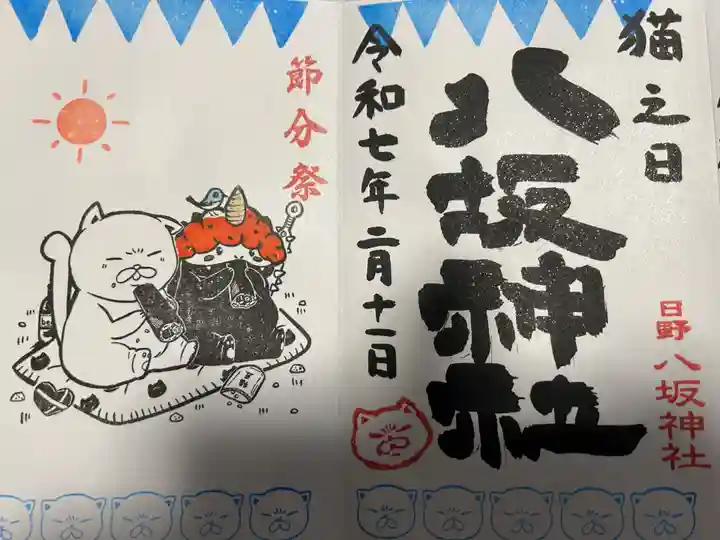 猫之日
八坂神社
令和七年二月十一日
日野八坂神社
節分祭